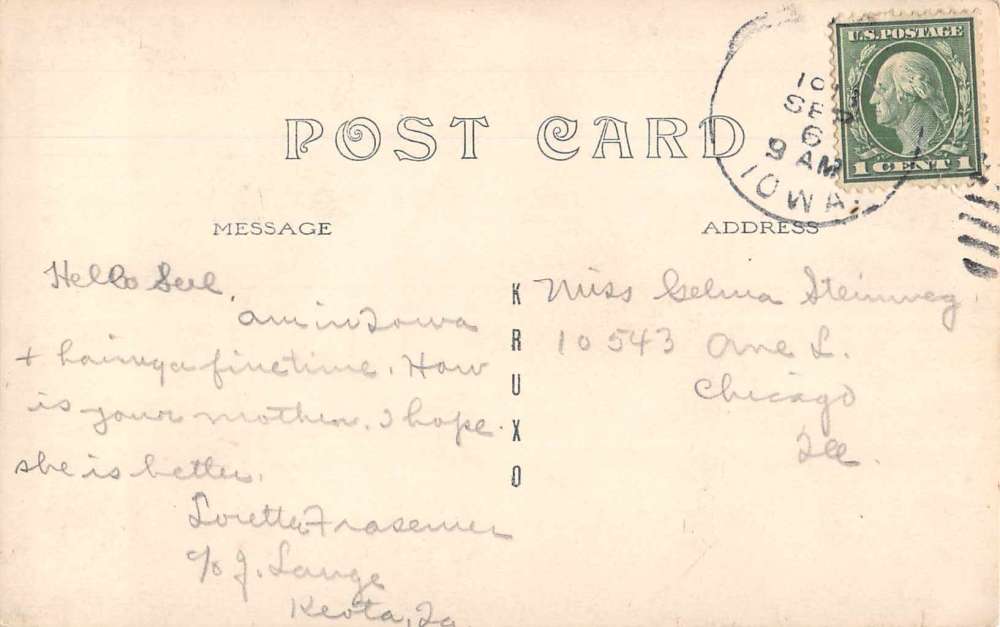 U.S. POSTAGE
1 CENT 1
SEP
6
9 AM
IOWA.
POST CARD
MESSAGE
Hello Sel,
am in Iowa
+ having a fine time. How
is your mother. I hope
she is better.
Loretta
c/o J. Lange
Keota, Ia
KRUXO
ADDRESS
Miss Selma Steinweg,
10543 Ave L.
Chicago
Ill.